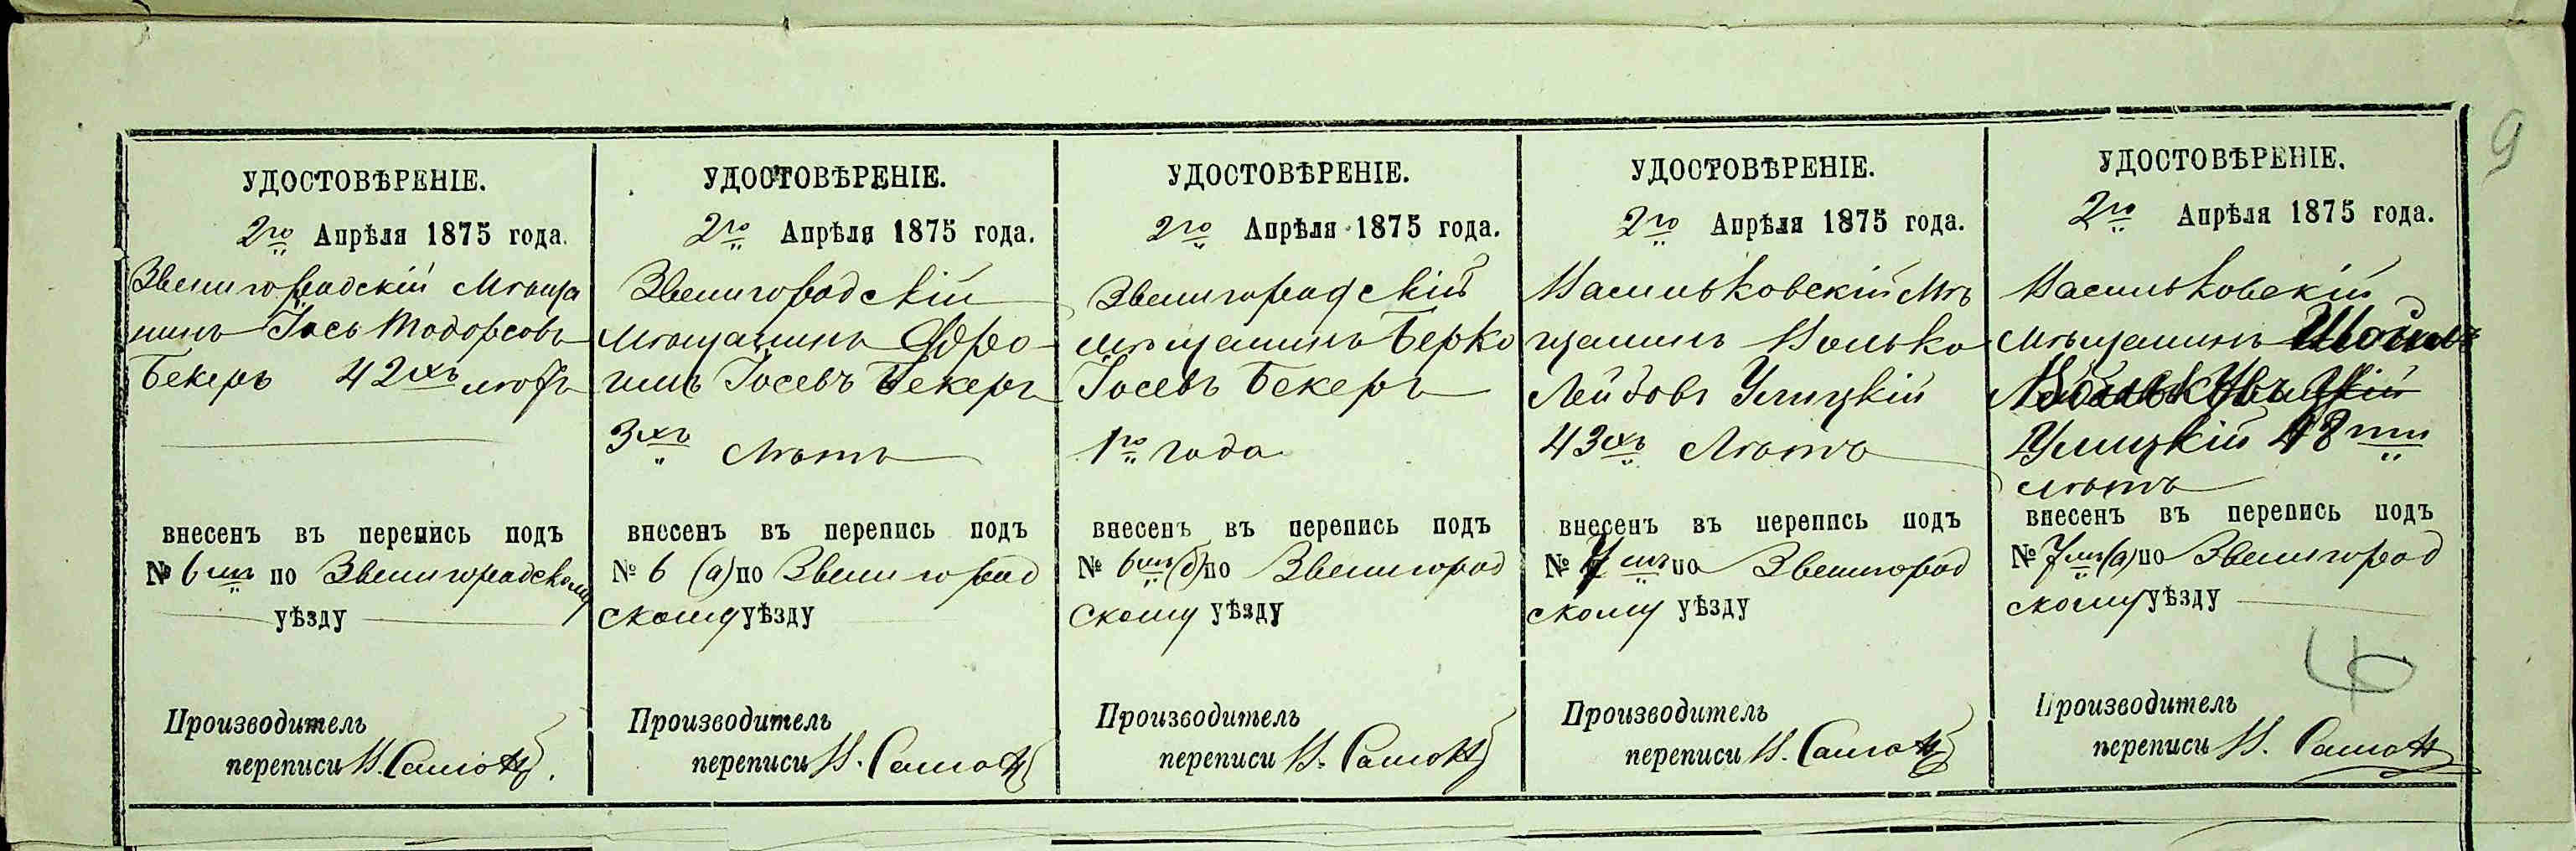 9
УДОСТОВѢРЕНІЕ.
2го Апрѣля 1875 года.
Звенигородскій Мѣща
нинъ Іось Тодоресовъ
Бекеръ 42хъ лѣтъ
внесенъ въ перепись подъ
№ 6мъ по Звенигородскому
уѣзду
Производитель
переписи
УДОСТОВѢРЕНІЕ.
2го Апрѣля 1875 года.
Звенигородскій
мѣщанинъ Фро
имъ Іосевъ Бекеръ
3хъ лѣтъ
внесенъ въ перепись подъ
№ 6 (а) по Звенигород
скому уѣзду
Производитель
переписи
УДОСТОВѢРЕНІЕ.
2го Апрѣля 1875 года.
Звенигородскій
мѣщанинъ Берко
Іосевъ Бекеръ
1го года
внесенъ въ перепись подъ
№ 6мъ (б) по Звенигород
скому уѣзду
Производитель
переписи
УДОСТОВѢРЕНІЕ.
2го Апрѣля 1875 года.
Васильковскій Мѣ
щанинъ Волько
Лейбовъ Улицкій
43хъ Лѣтъ
внесенъ въ перепись подъ
№ 7мъ по Звенигород
скому уѣзду
Производитель
переписи
УДОСТОВѢРЕНІЕ.
2го Апрѣля 1875 года.
Васильковскій
мѣщанинъ
Улицкій 18ти
лѣтъ
внесенъ въ перепись подъ
№ 7мъ (а) по Звенигород
скому уѣзду
Производитель
переписи